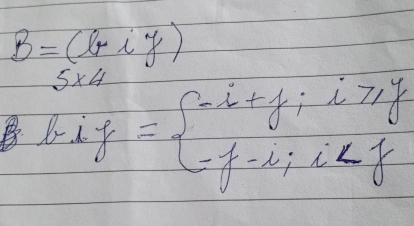 B = (b i j)
5x4
b i j = { -i + j ; i ⩾ j
-j - i ; i < j